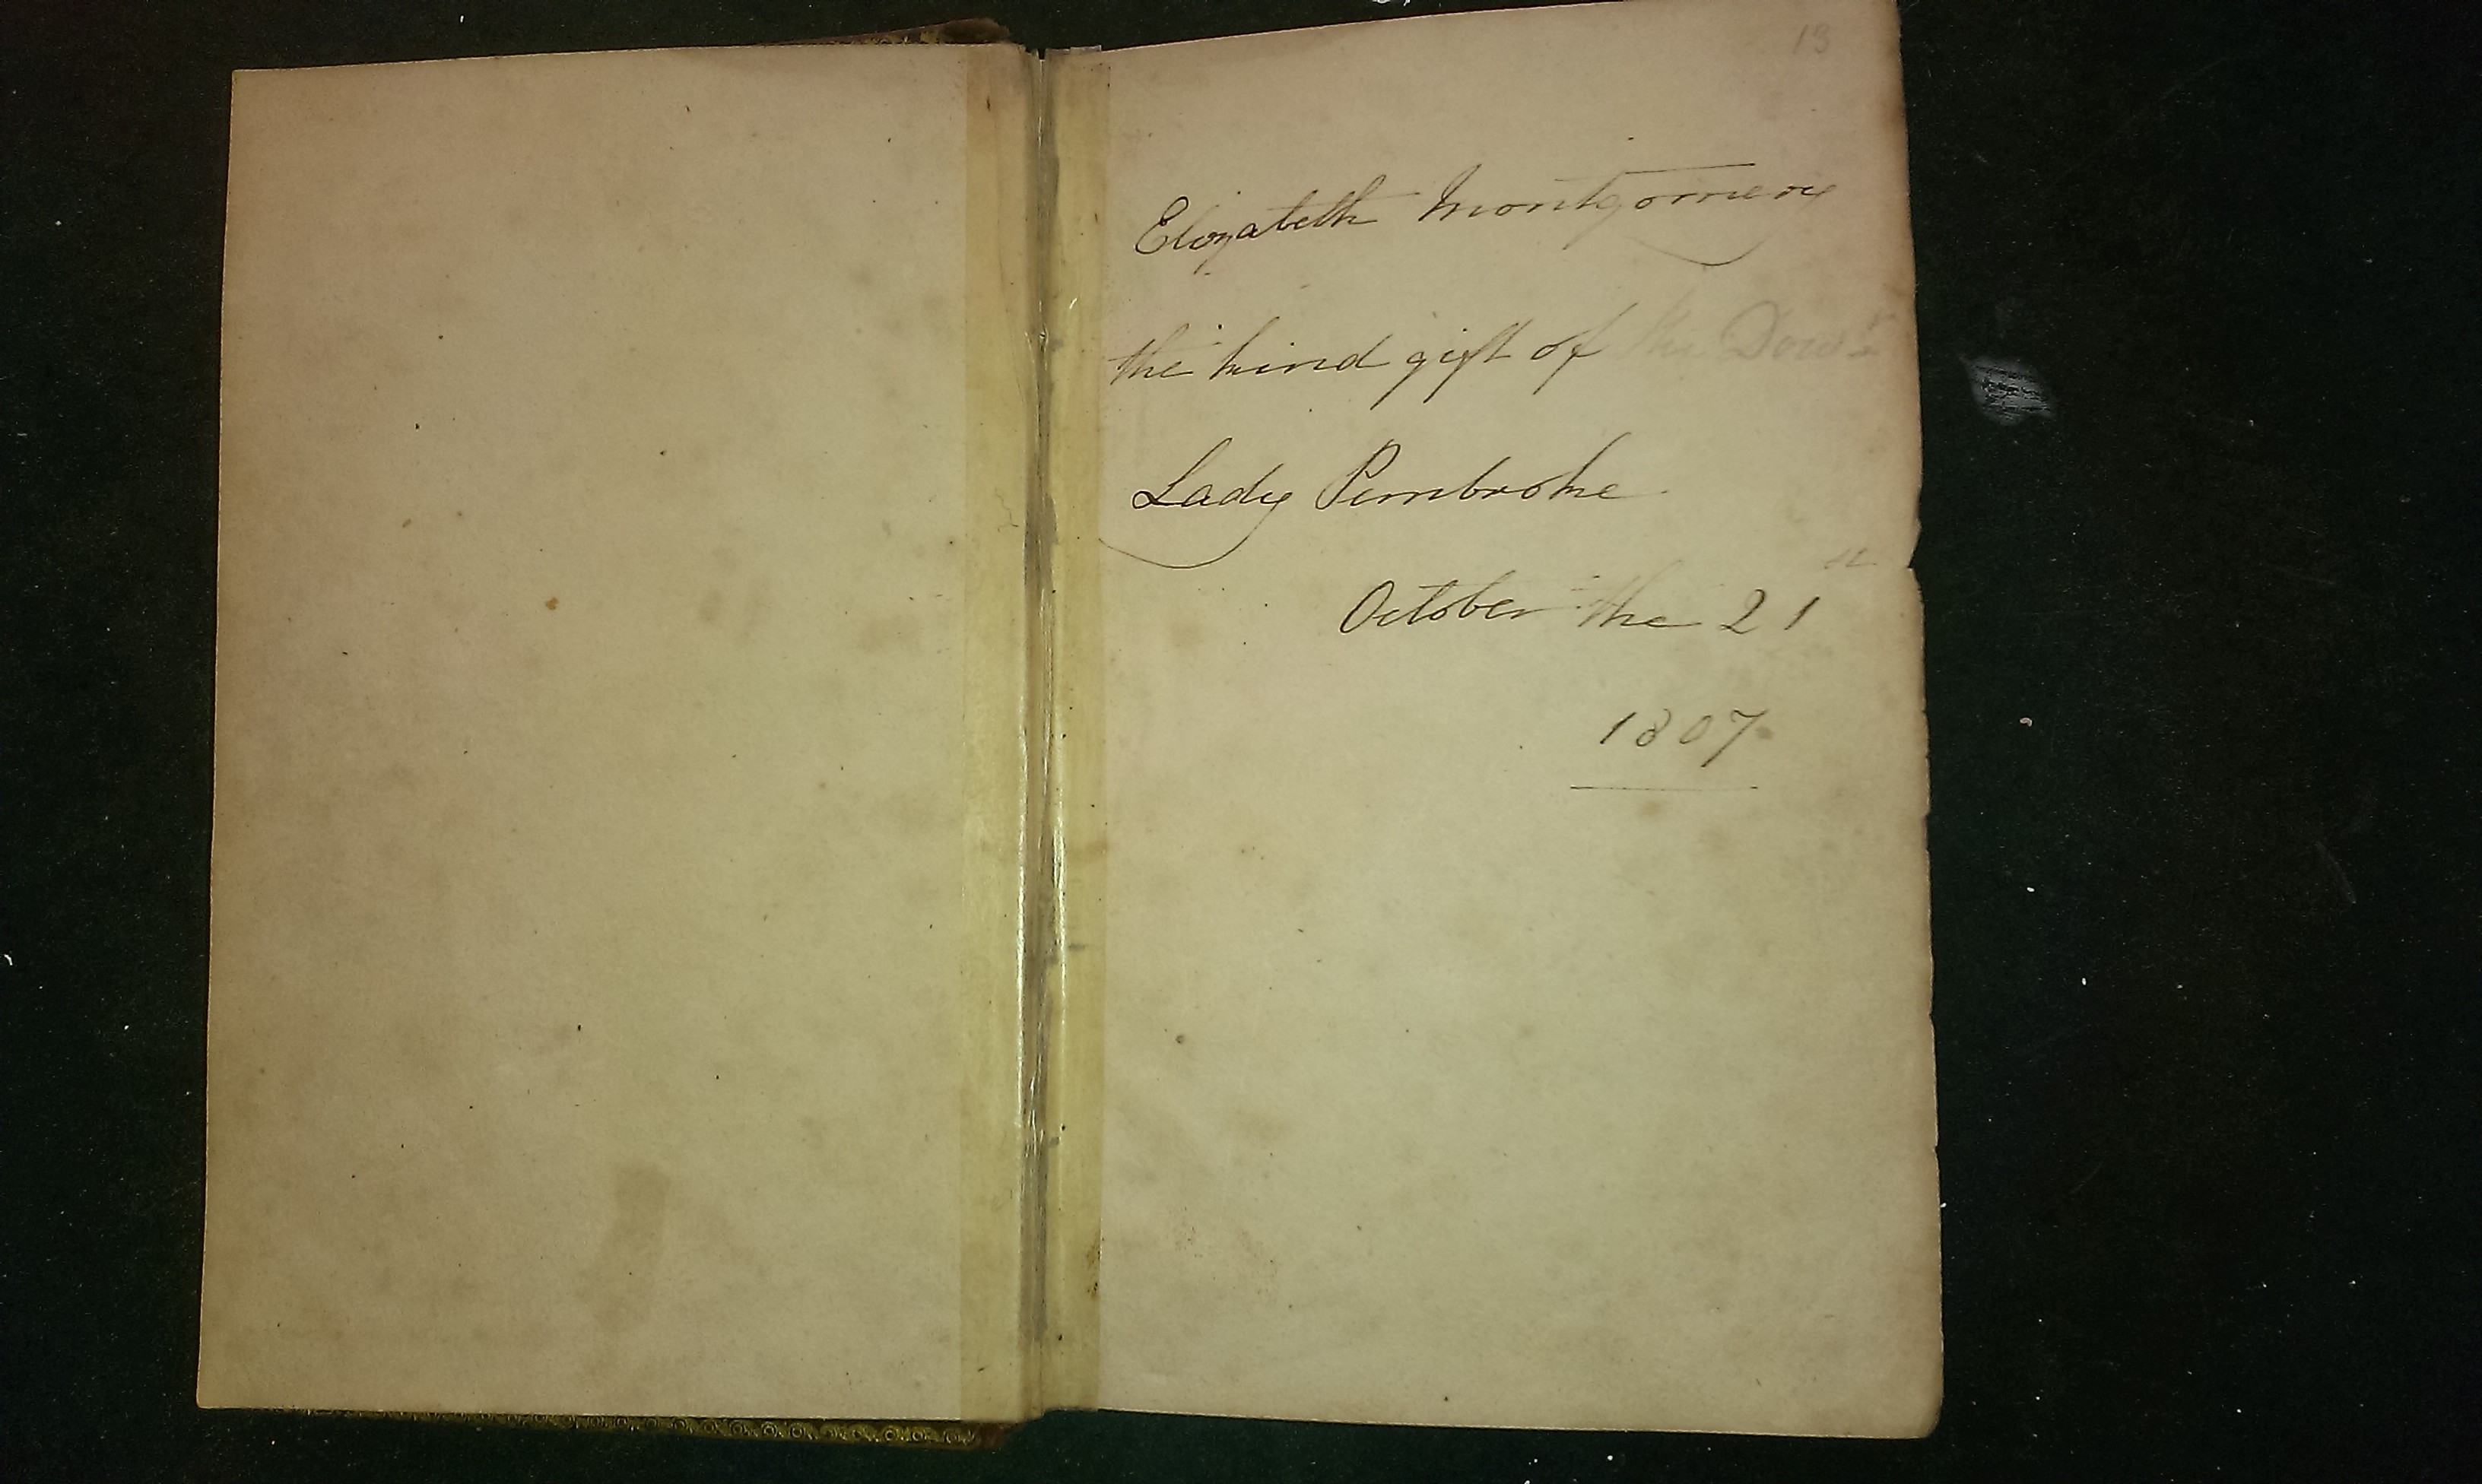 13
Elizabeth Montgomery
the kind gift of the Dowr
Lady Pembroke
October the 21st
1807